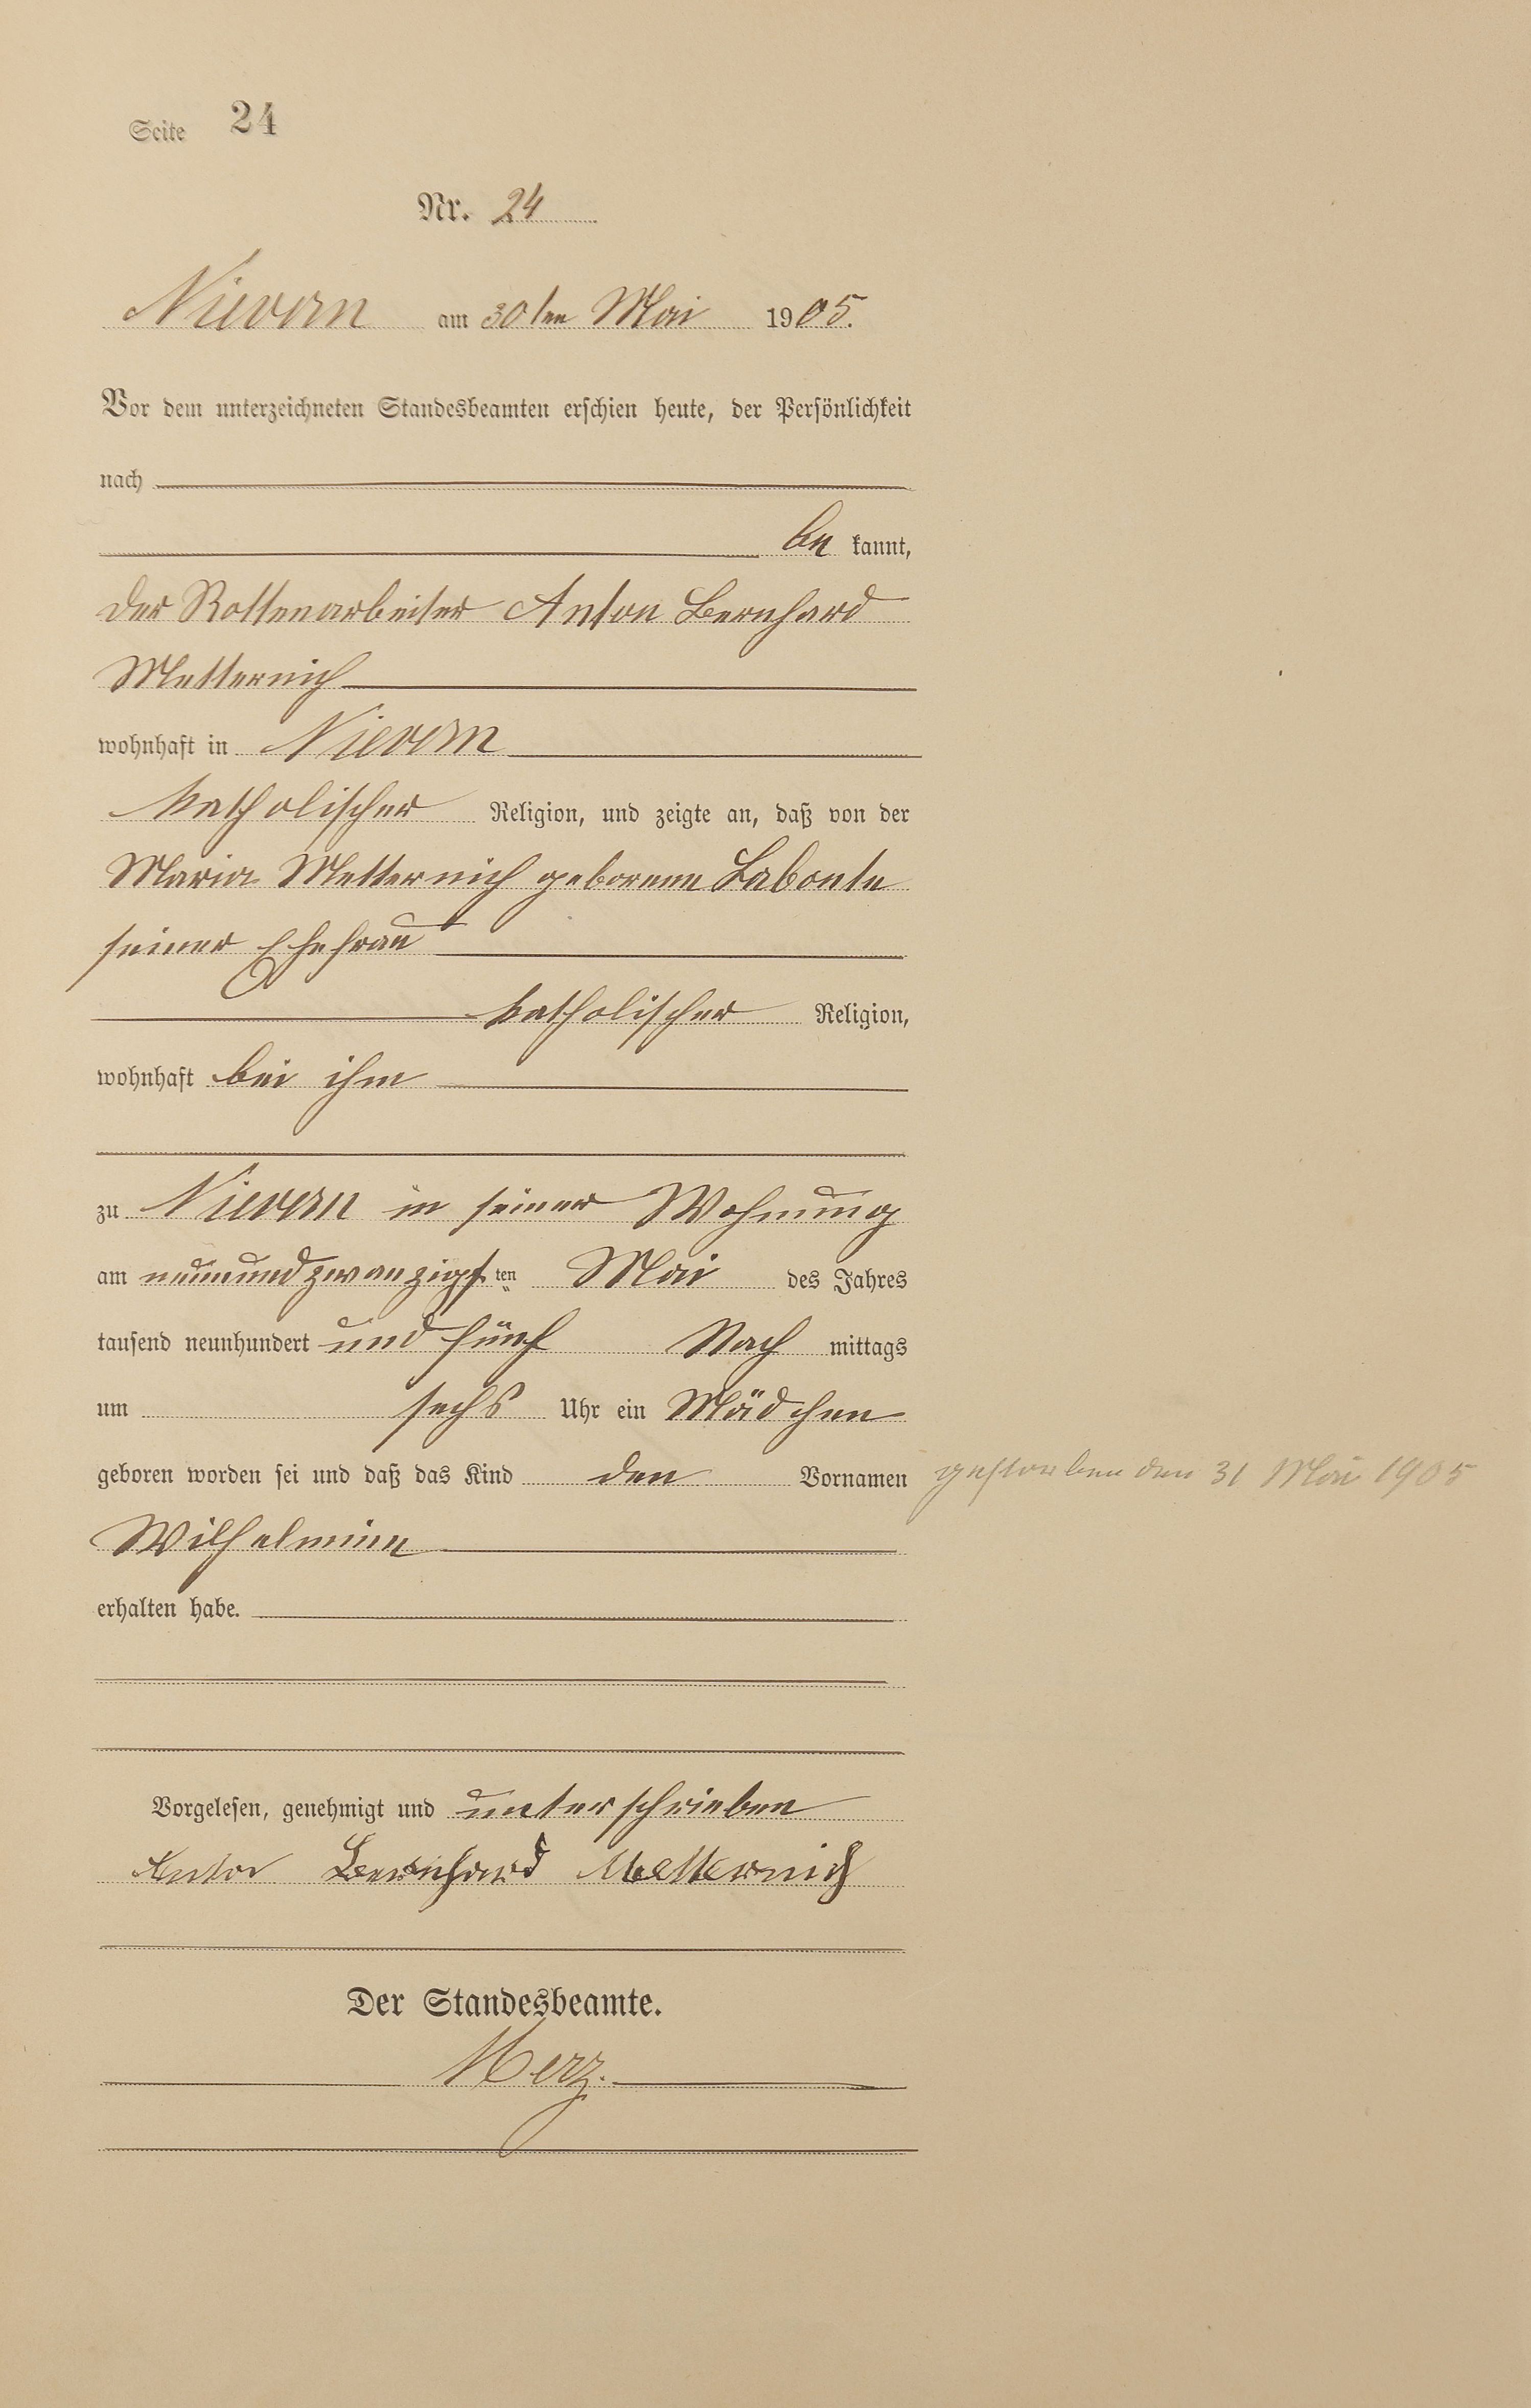 Seite 24
Nr. 24
Nievern am 30ten Mai 1905.
Vor dem unterzeichneten Standesbeamten erschien heute, der Persönlichkeit
nach
be kannt,
der Rottenarbeiter Anton Bernhard
Metternich
wohnhaft in Nievern
katholischer Religion, und zeigte an, daß von der
Maria Metternich geborene Labonte
seiner Ehefrau
katholischer Religion,
wohnhaft bei ihm
zu Nievern in seiner Wohnung
am neunundzwanzigsten Mai des Jahres
tausend neunhundert und fünf Nach mittags
um sechs Uhr ein Mädchen
geboren worden sei und daß das Kind den Vornamen gestorben den 31 Mai 1905
Wilhelmine
erhalten habe.
Vorgelesen, genehmigt und unterschrieben
Anton Bernhard Metternich
Der Standesbeamte.
Merz.